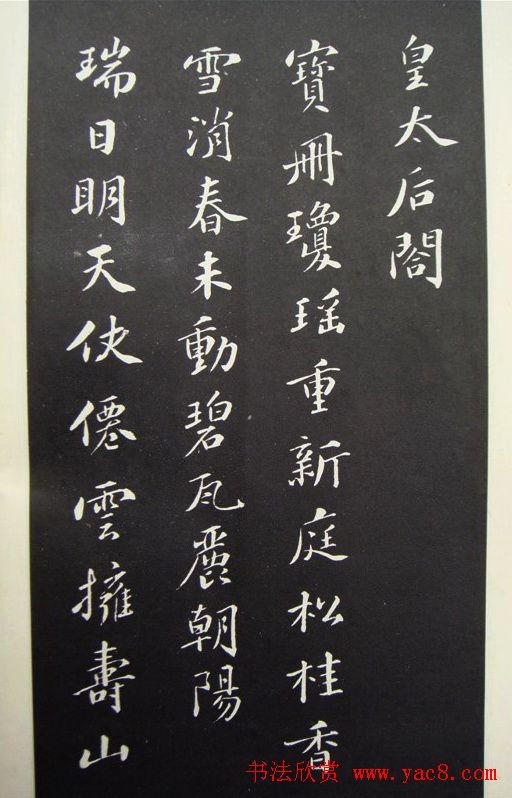 皇太后閤
寶冊瓊瑶重新庭松桂香
雪消春未動碧瓦麗朝陽
瑞日明天仗僊雲擁壽山
书法欣赏 www.yac8.com